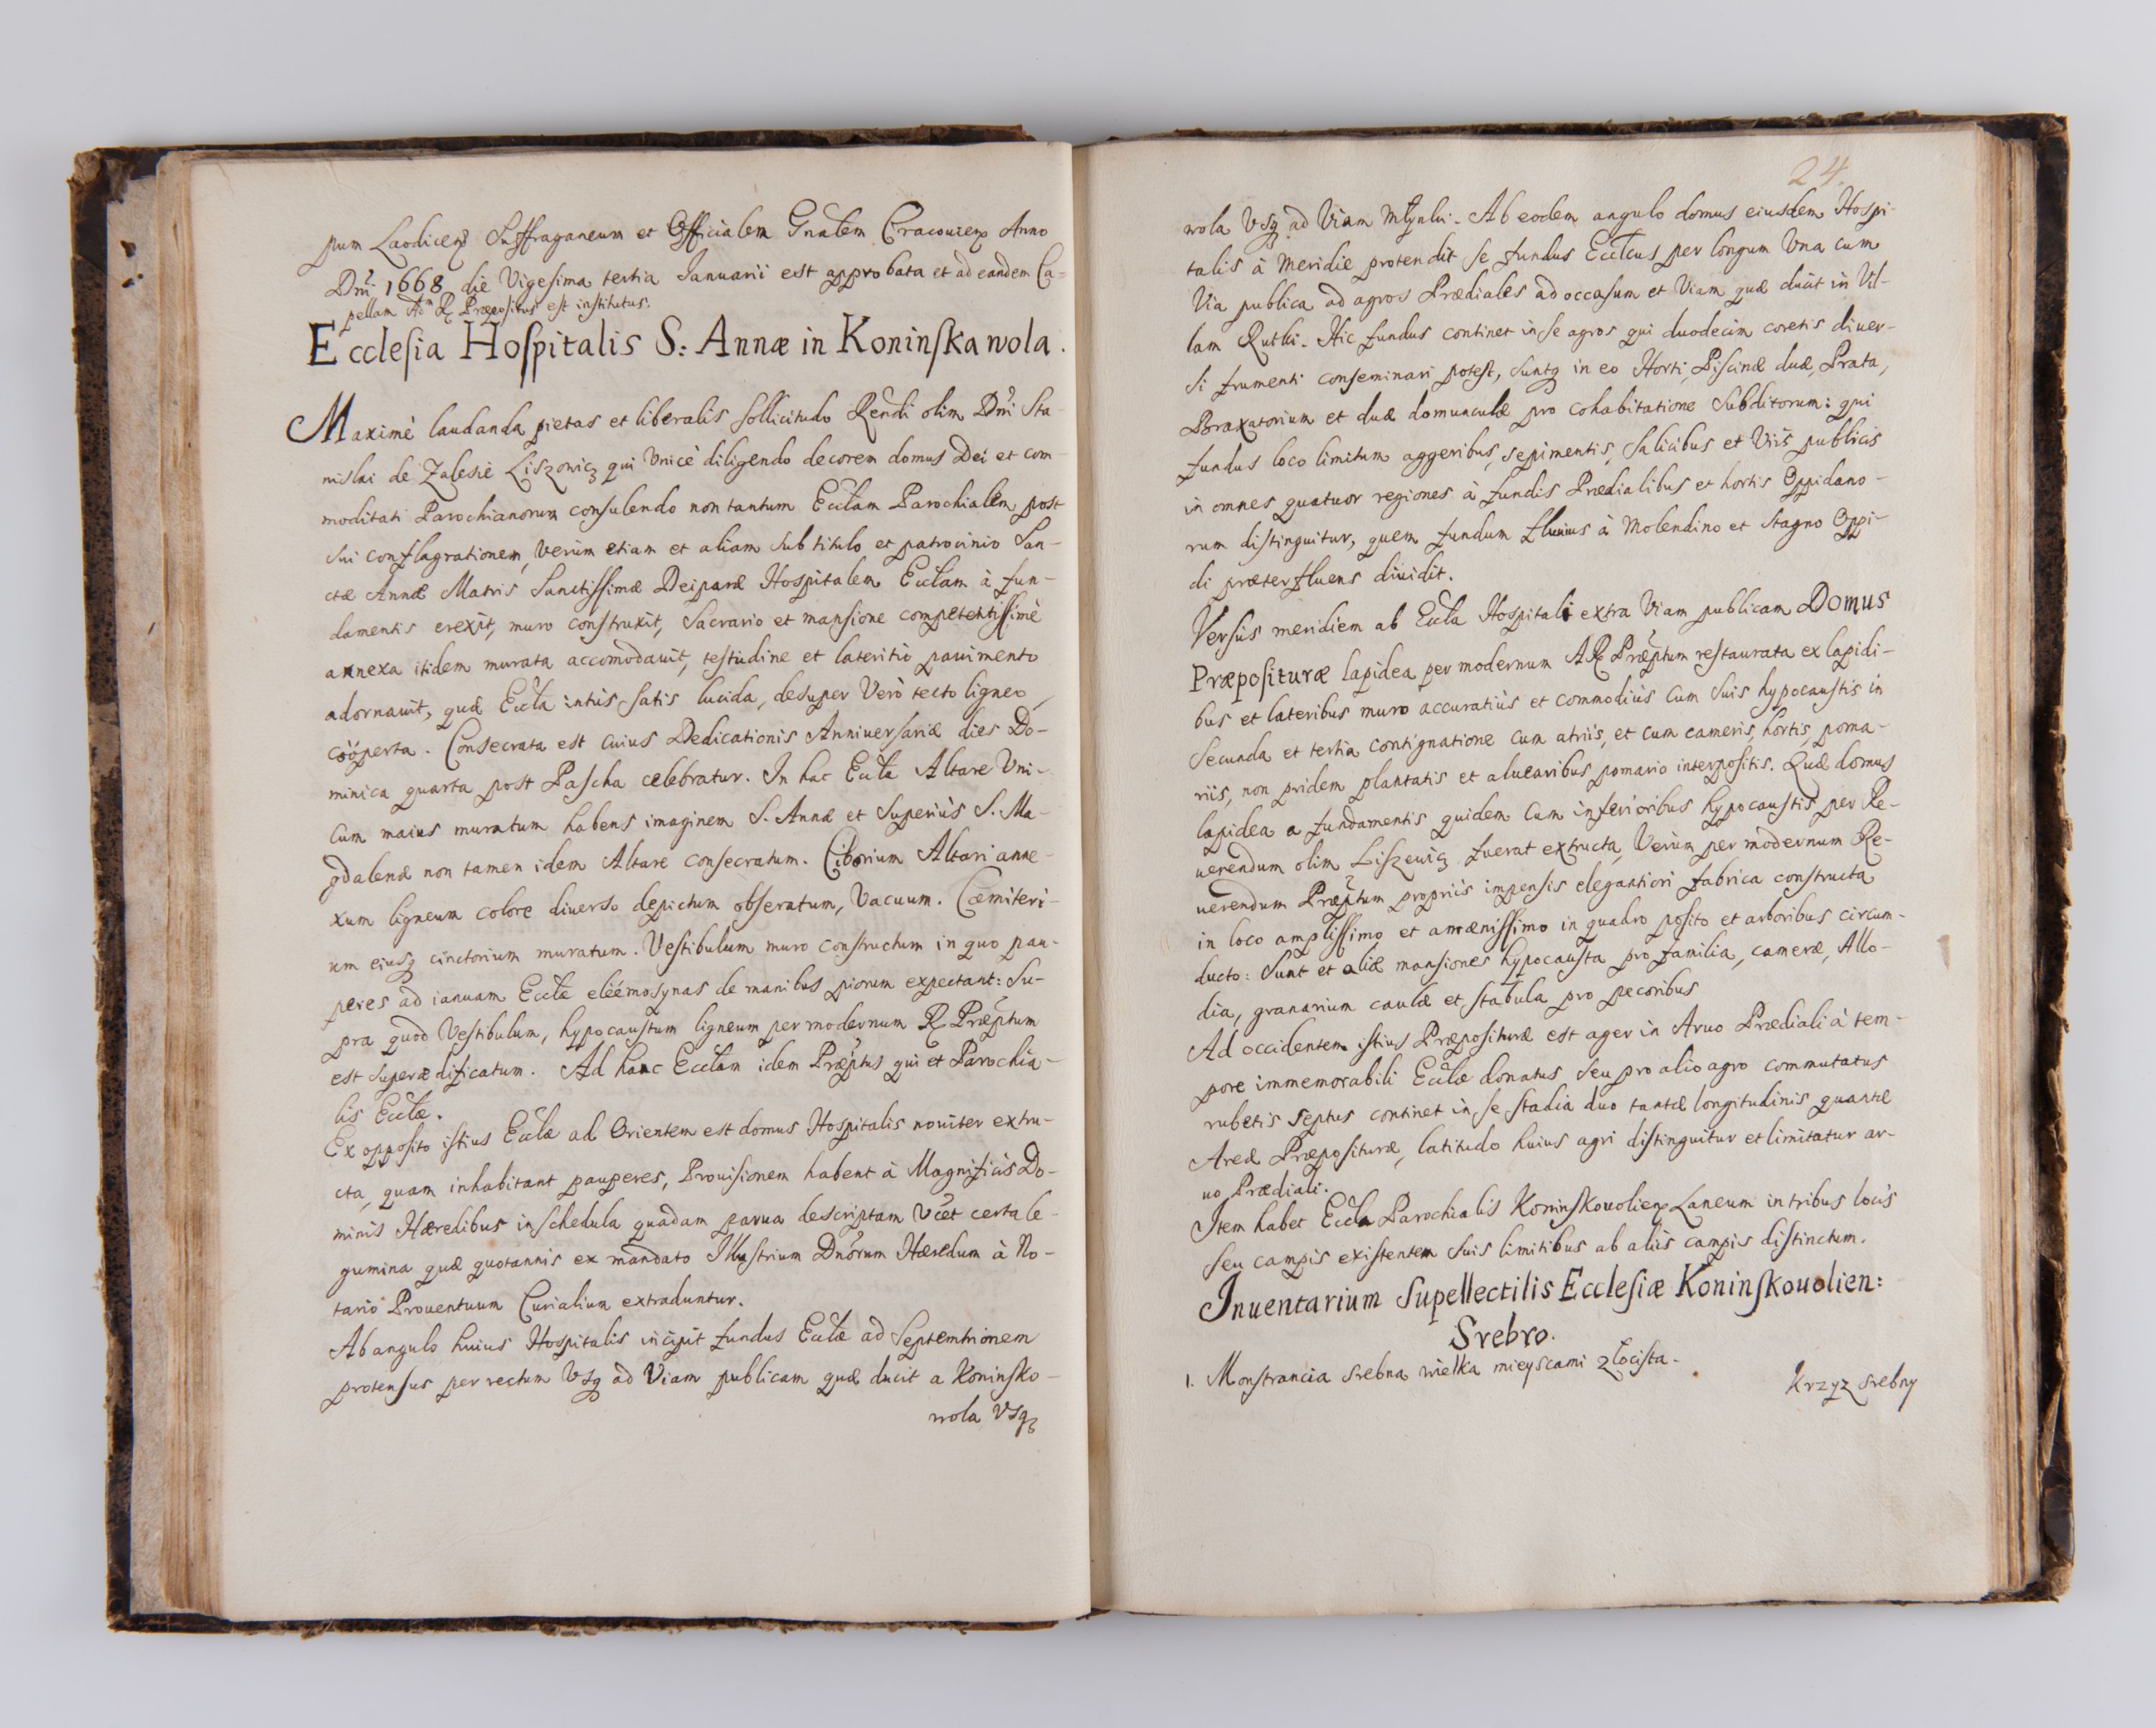 pum Laodiceñ Suffraganeum et Officialem Gnalem Cracouieñ Anno
Dni 1668 die Vigesima tertia Ianuarii est approbata et ad eandem Ca=
pellam Adm R Præpositus est institutus.
Ecclesia Hospitalis S: Annæ in Koninska wola.
Maximè laudanda pietas et liberalis sollicitudo Rendi olim Dni Sta-
nislai de Zalesie Liszowicz qui Vnicè diligendo decorem domus Dei et com-
moditati Parochianorum consulendo non tantum Ecclam Parochialem post
sui conflagrationem, Verùm etiam et aliam sub titulo et patrocinio San-
ctæ Annæ Matris Sanctissimæ Deiparæ Hospitalem Ecclam à fun-
damentis erexit, muro construxit, Sacrario et mansione competentissimè
annexa itidem murata accomodauit, testudine et lateritio pauimento
adornauit, quæ Eccla intùs satis lucida, desuper Verò tecto ligneo
coòperta. Consecrata est cuius Dedicationis Anniuersariæ dies Do-
minica quarta post Pascha celebratur. In hac Eccla Altare Vni-
cum maius muratum habens imaginem S. Annæ et Superiùs S. Ma-
gdalenæ non tamen idem Altare consecratum. Ciborium Altari anne-
xum ligneum colore diuerso depictum obseratum, Vacuum. Cæmiteri-
um eiusq cinctorium muratum. Vestibulum muro constructum in quo pau-
peres ad ianuam Ecclæ eleémosynas de manibus piorum expectant: Su-
pra quod Vestibulum, hypocaustum ligneum per modernum R Præptum
est superædificatum. Ad hanc Ecclam idem Præptus qui et Parochia-
lis Ecclæ.
Ex opposito istius Ecclæ ad Orientem est domus Hospitalis nouiter extru-
cta, quam inhabitant pauperes, Prouisionem habent à Magnificis Do-
minis Hæredibus in schedula quadam parua descriptam Vcet certa le-
gumina quæ quotannis ex mandato Illustrium Dnorum Hæredum à No-
tario Prouentuum Curialium extraduntur.
Ab angulo huius Hospitalis incipit fundus Ecclæ ad Septemtrionem
protensus per rectum Vsq ad Viam publicam quæ ducit a Koninsko-
wola Vsq
24.
wola Vsq ad Viam Młynki. Ab eodem angulo domus eiusdem Hospi-
talis à Meridie protendit se fundus Ecclcus per longum Vna cum
Via publica ad agros Prædiales ad occasum et Viam quæ ducit in Vil-
lam Rutki. Hic fundus continet in se agros qui duodecim coretis diuer-
si frumenti conseminari potest, suntq in eo Horti, Piscinæ duæ, Prata,
Braxatorium et duæ domunculæ pro cohabitatione Subditorum: qui
fundus loco limitum aggeribus, sepimentis, Salicibus et Viis publicis
in omnes quatuor regiones à fundis Prædialibus et hortis Oppidano-
rum distinguitur, quem fundum fluuius à Molendino et Stagno Oppi-
di præterfluens diuidit.
Versùs meridiem ab Eccla Hospitali extra Viam publicam Domus
Præposituræ lapidea per modernum AR Præptum restaurata ex lapidi-
bus et lateribus muro accuratiùs et commodiùs cum suis hypocaustis in
Secunda et tertia contignatione cum atriis, et cum cameris, hortis, poma-
riis, non pridem plantatis et aluearibus pomario interpositis. Quæ domus
lapidea a fundamentis quidem cum inferioribus hypocaustis per Re-
uerendum olim Liszewicz fuerat extructa, Verùm per modernum Re-
uerendum Præptum propriis impensis elegantiori fabrica constructa
in loco amplissimo et amænissimo in quadro posito et arboribus circum-
ducto: Sunt et aliæ mansiones hypocausta pro familia, cameræ, Allo-
dia, granarium caulæ et stabula pro pecoribus
Ad occidentem istius Præposituræ est ager in Aruo Prædiali à tem-
pore immemorabili Ecclæ donatus seu pro alio agro commutatus
rubetis septus continet in se stadia duo tantæ longitudinis quantæ
Areæ Præposituræ, latitudo huius agri distinguitur et limitatur ar-
uo Prædiali.
Item habet Eccla Parochialis Koninskouolieñ Laneum in tribus locis
seu campis existentem suis limitibus ab aliis campis distinctum.
Inuentarium Supellectilis Ecclesiæ Koninskouolien:
Srebro.
1. Monstrancia srebna wielka mieyscami złocista.
Krzyz srebny